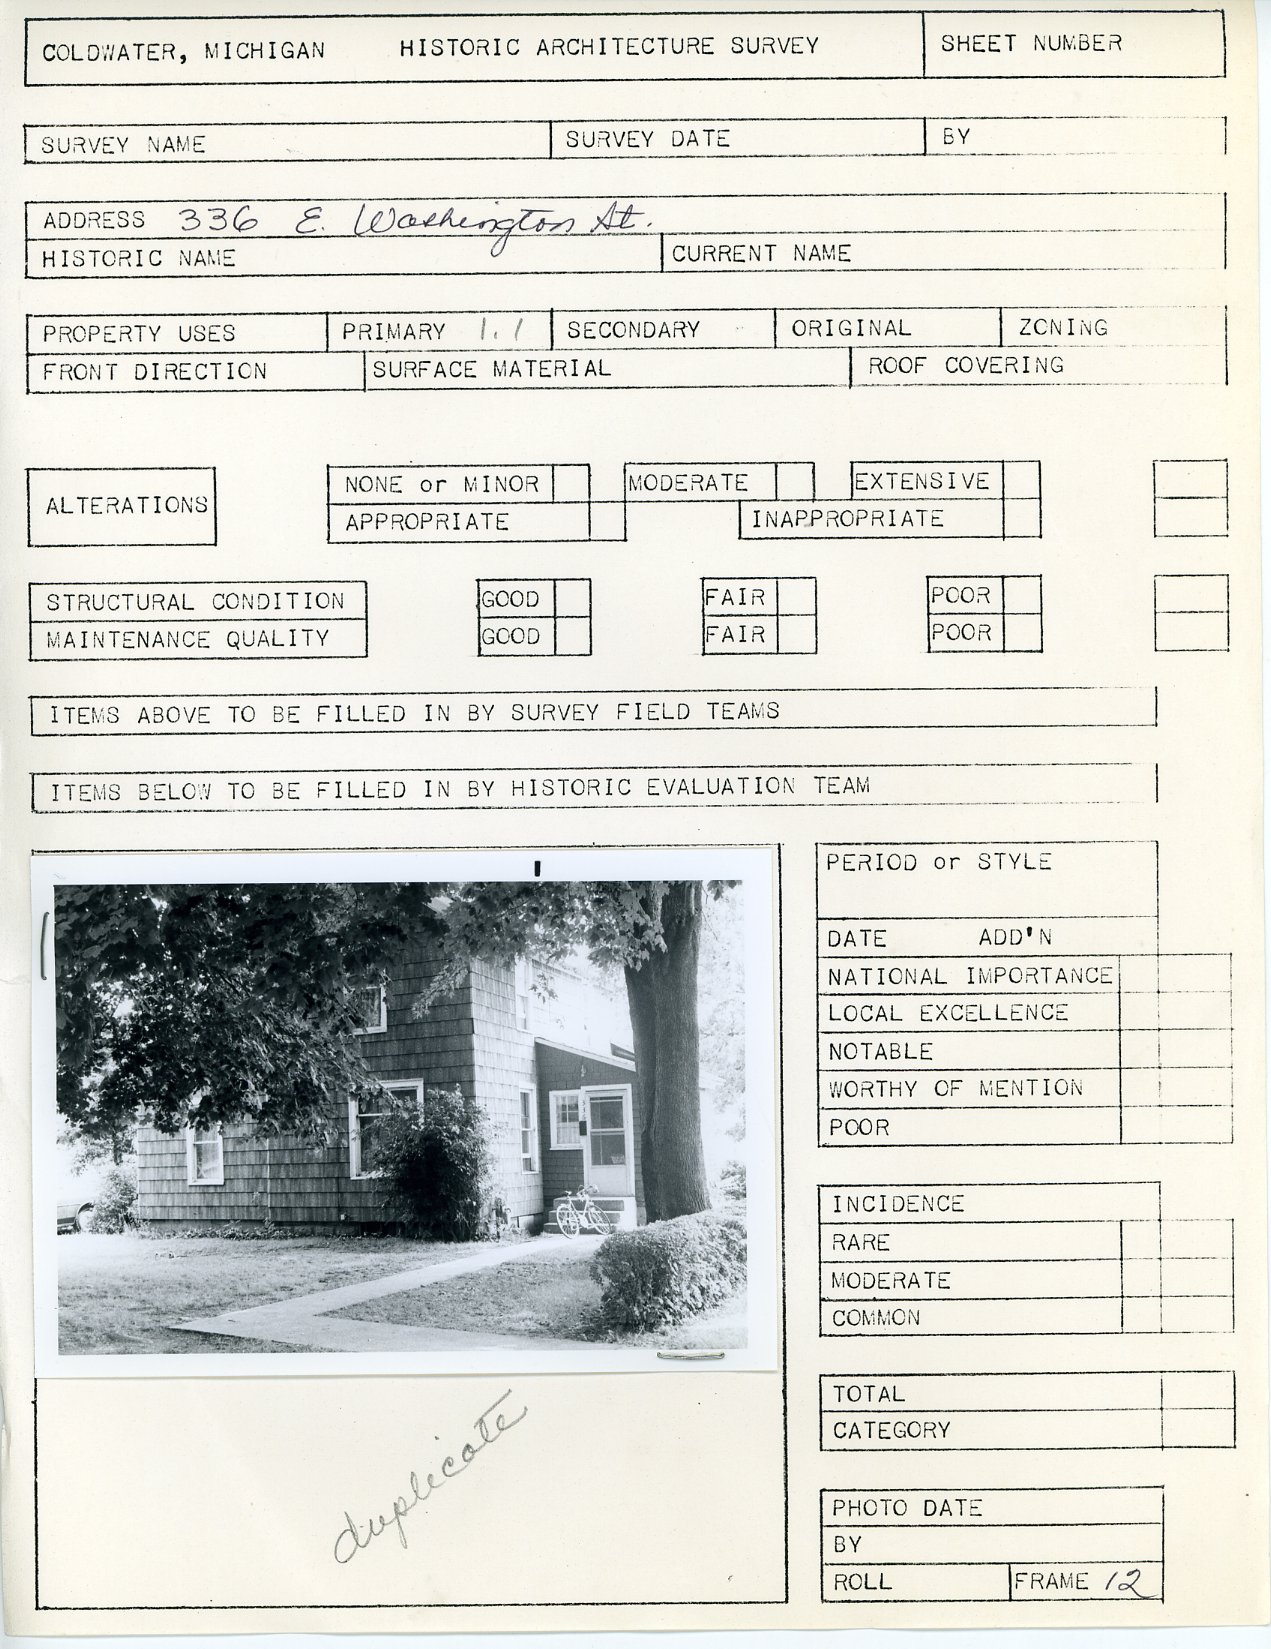 COLDWATER, MICHIGAN HISTORIC ARCHITECTURE SURVEY SHEET NUMBER
SURVEY NAME SURVEY DATE BY
ADDRESS 336 E. Washington St.
HISTORIC NAME CURRENT NAME
PROPERTY USES PRIMARY 1.1 SECONDARY ORIGINAL ZONING
FRONT DIRECTION SURFACE MATERIAL ROOF COVERING
ALTERATIONS
NONE or MINOR MODERATE EXTENSIVE
APPROPRIATE INAPPROPRIATE
STRUCTURAL CONDITION GOOD FAIR POOR
MAINTENANCE QUALITY GOOD FAIR POOR
ITEMS ABOVE TO BE FILLED IN BY SURVEY FIELD TEAMS
ITEMS BELOW TO BE FILLED IN BY HISTORIC EVALUATION TEAM
PERIOD or STYLE
DATE ADD'N
NATIONAL IMPORTANCE
LOCAL EXCELLENCE
NOTABLE
WORTHY OF MENTION
POOR
INCIDENCE
RARE
MODERATE
COMMON
TOTAL
CATEGORY
duplicate
PHOTO DATE
BY
ROLL FRAME 12